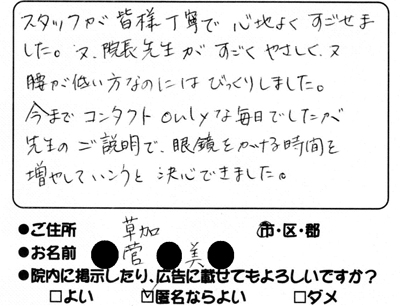 スタッフが皆様丁寧で心地よくすごせま
した。又、院長先生がすごくやさしく、又
腰が低い方なのにはびっくりしました。
今までコンタクトonlyな毎日でしたが
先生のご説明で、眼鏡をかける時間を
増やしていこうと決心できました。
●ご住所 草加 市・区・郡
●お名前 菅 美
●院内に掲示したり、広告に載せてもよろしいですか?
□よい ☑匿名ならよい □ダメ